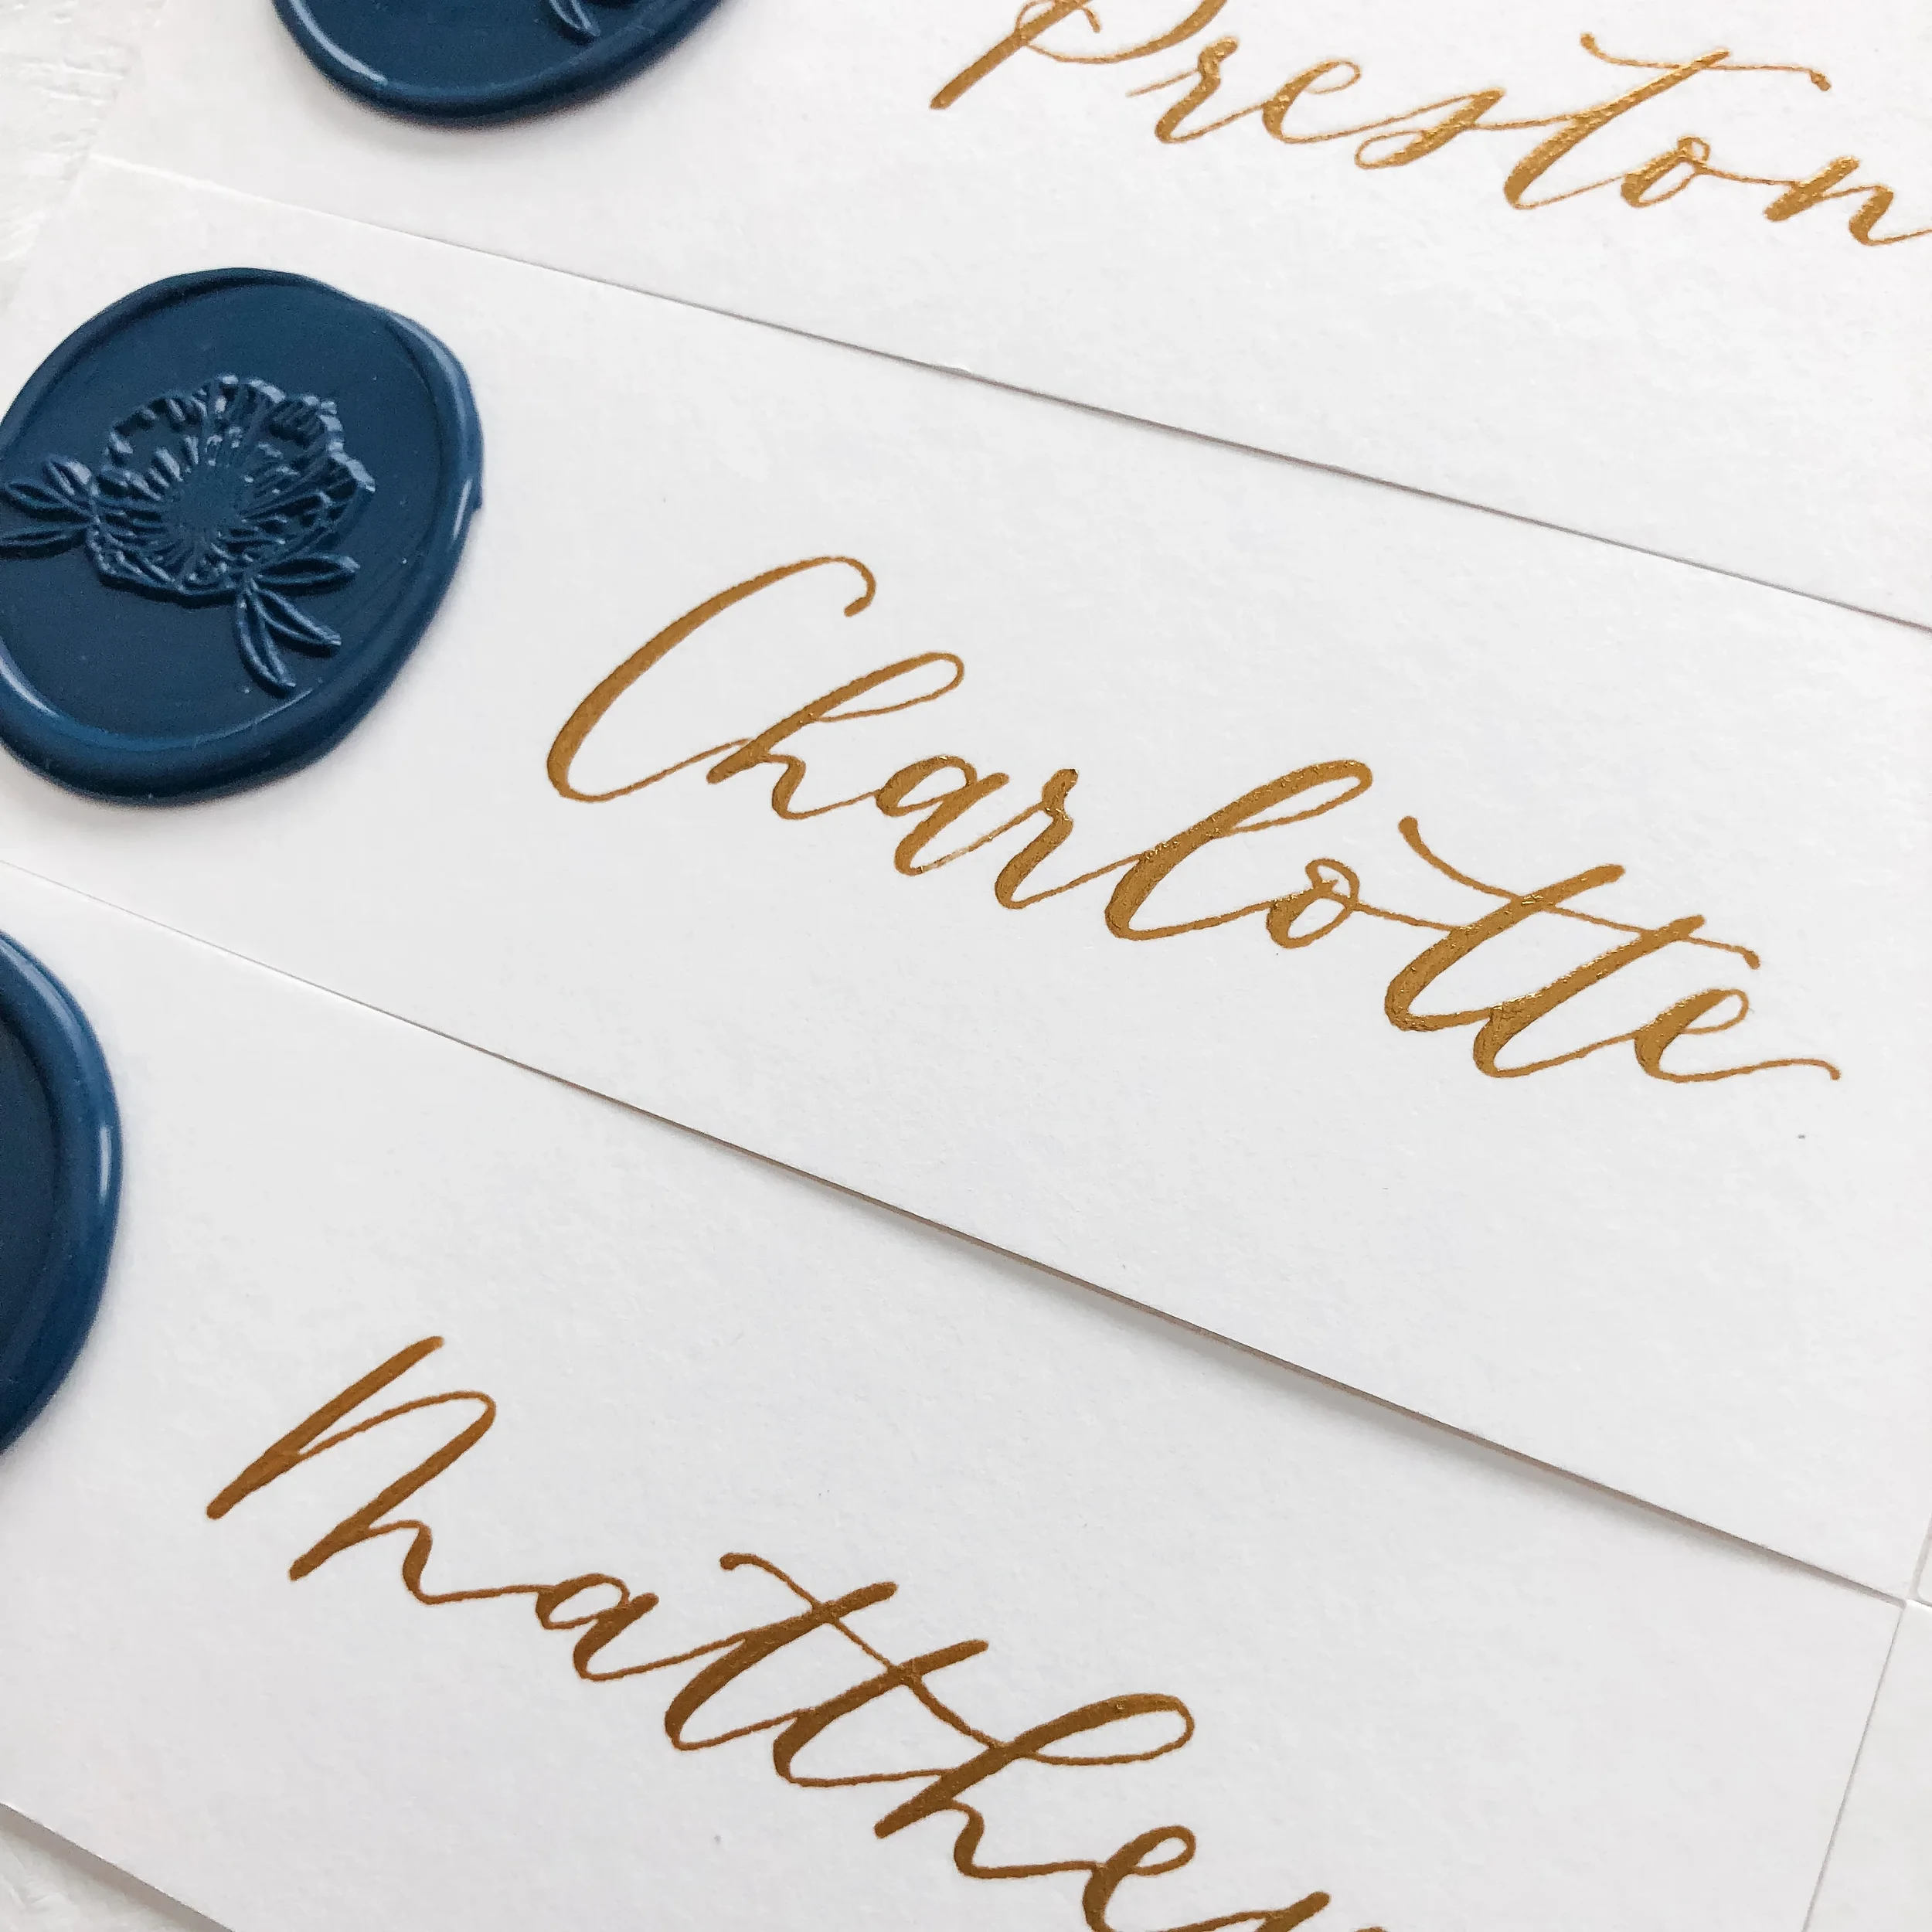 Preston
Charlotte
Matthew